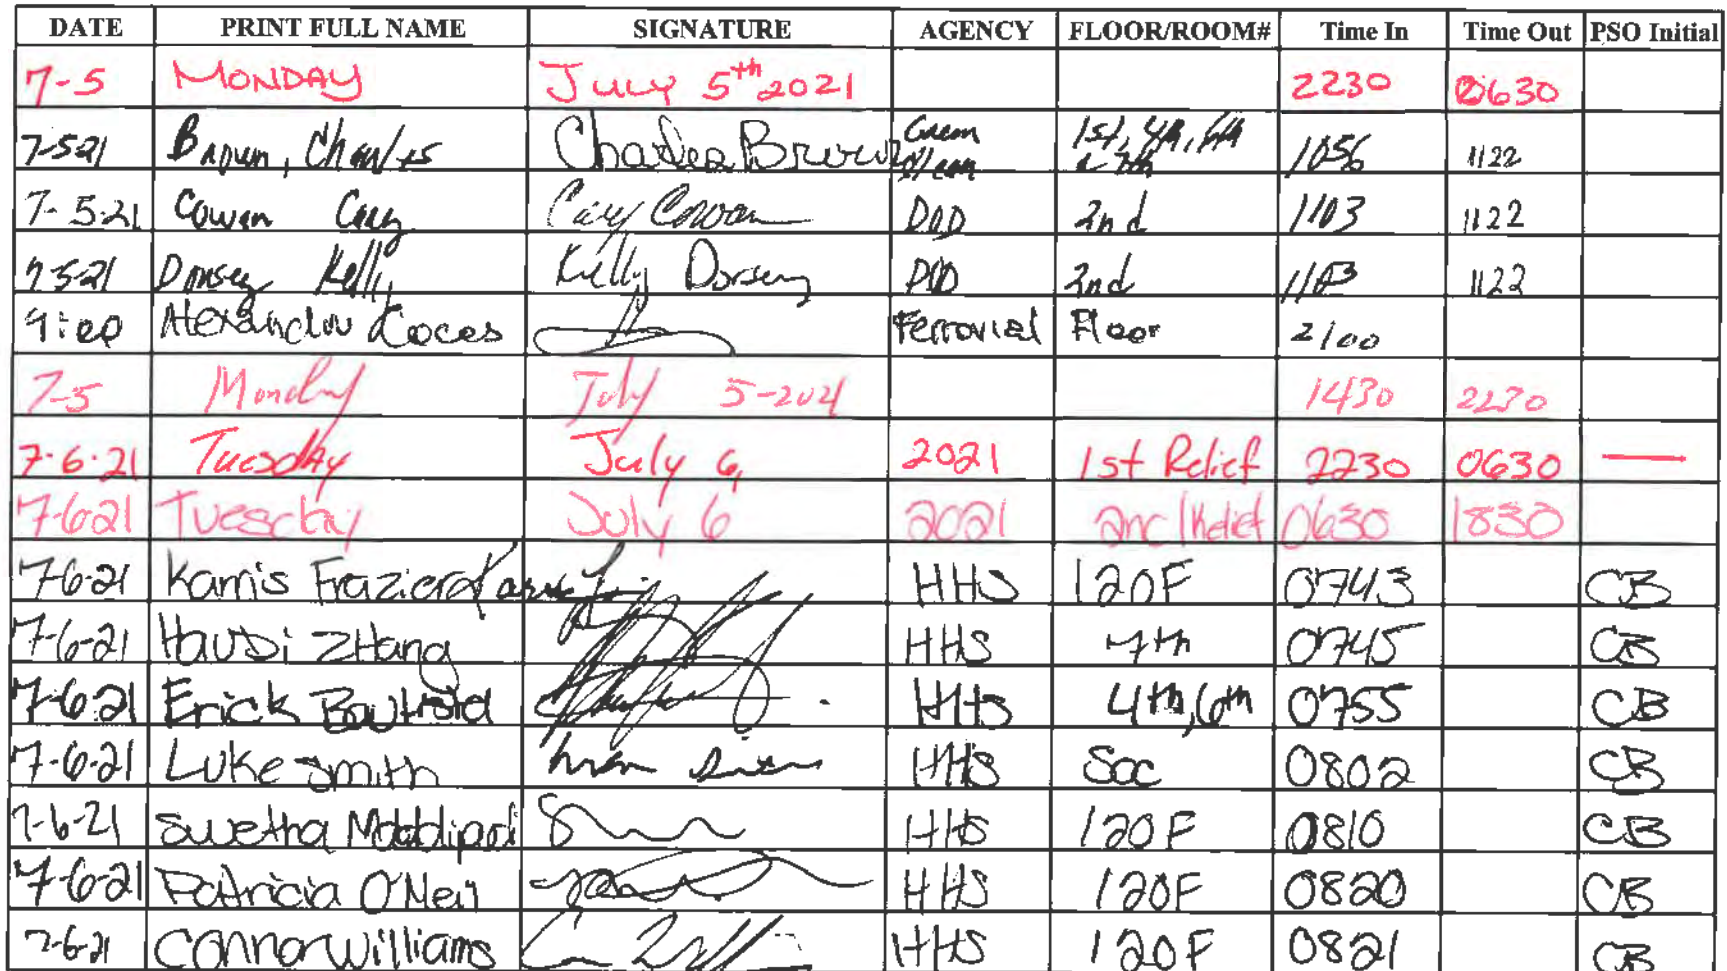 DATE PRINT FULL NAME SIGNATURE AGENCY FLOOR/ROOM# Time In Time Out PSO Initial
7-5 MONDAY July 5th 2021 2230 0630
7-5-21 Brown, Charles Charles Brown Green Clean 1st, 4th, 6th & 7th 1056 1122
7-5-21 Cowan Cary Cary Cowan DOD 2nd 1103 1122
7-5-21 Dorsey Kelly Kelly Dorsey DOD 2nd 1103 1122
Ferrovial Floor 2100
7-5 Monday July 5-2021 1430 2230
7-6-21 Tuesday July 6, 2021 1st Relief 2230 0630 —
7-6-21 Tuesday July 6 2021 2nd Relief 0630 1830
7-6-21 Karris Frazier HHS 120F 0743 CB
7-6-21 Hausi ZHang HHS 7th 0745 CB
7-6-21 Erick Bautista HHS 4th, 6th 0755 CB
7-6-21 Luke Smith HHS Soc 0802 CB
7-6-21 Swetha HHS 120F 0810 CB
7-6-21 Patricia O'Neil HHS 120F 0820 CB
7-6-21 Connor Williams HHS 120F 0821 CB